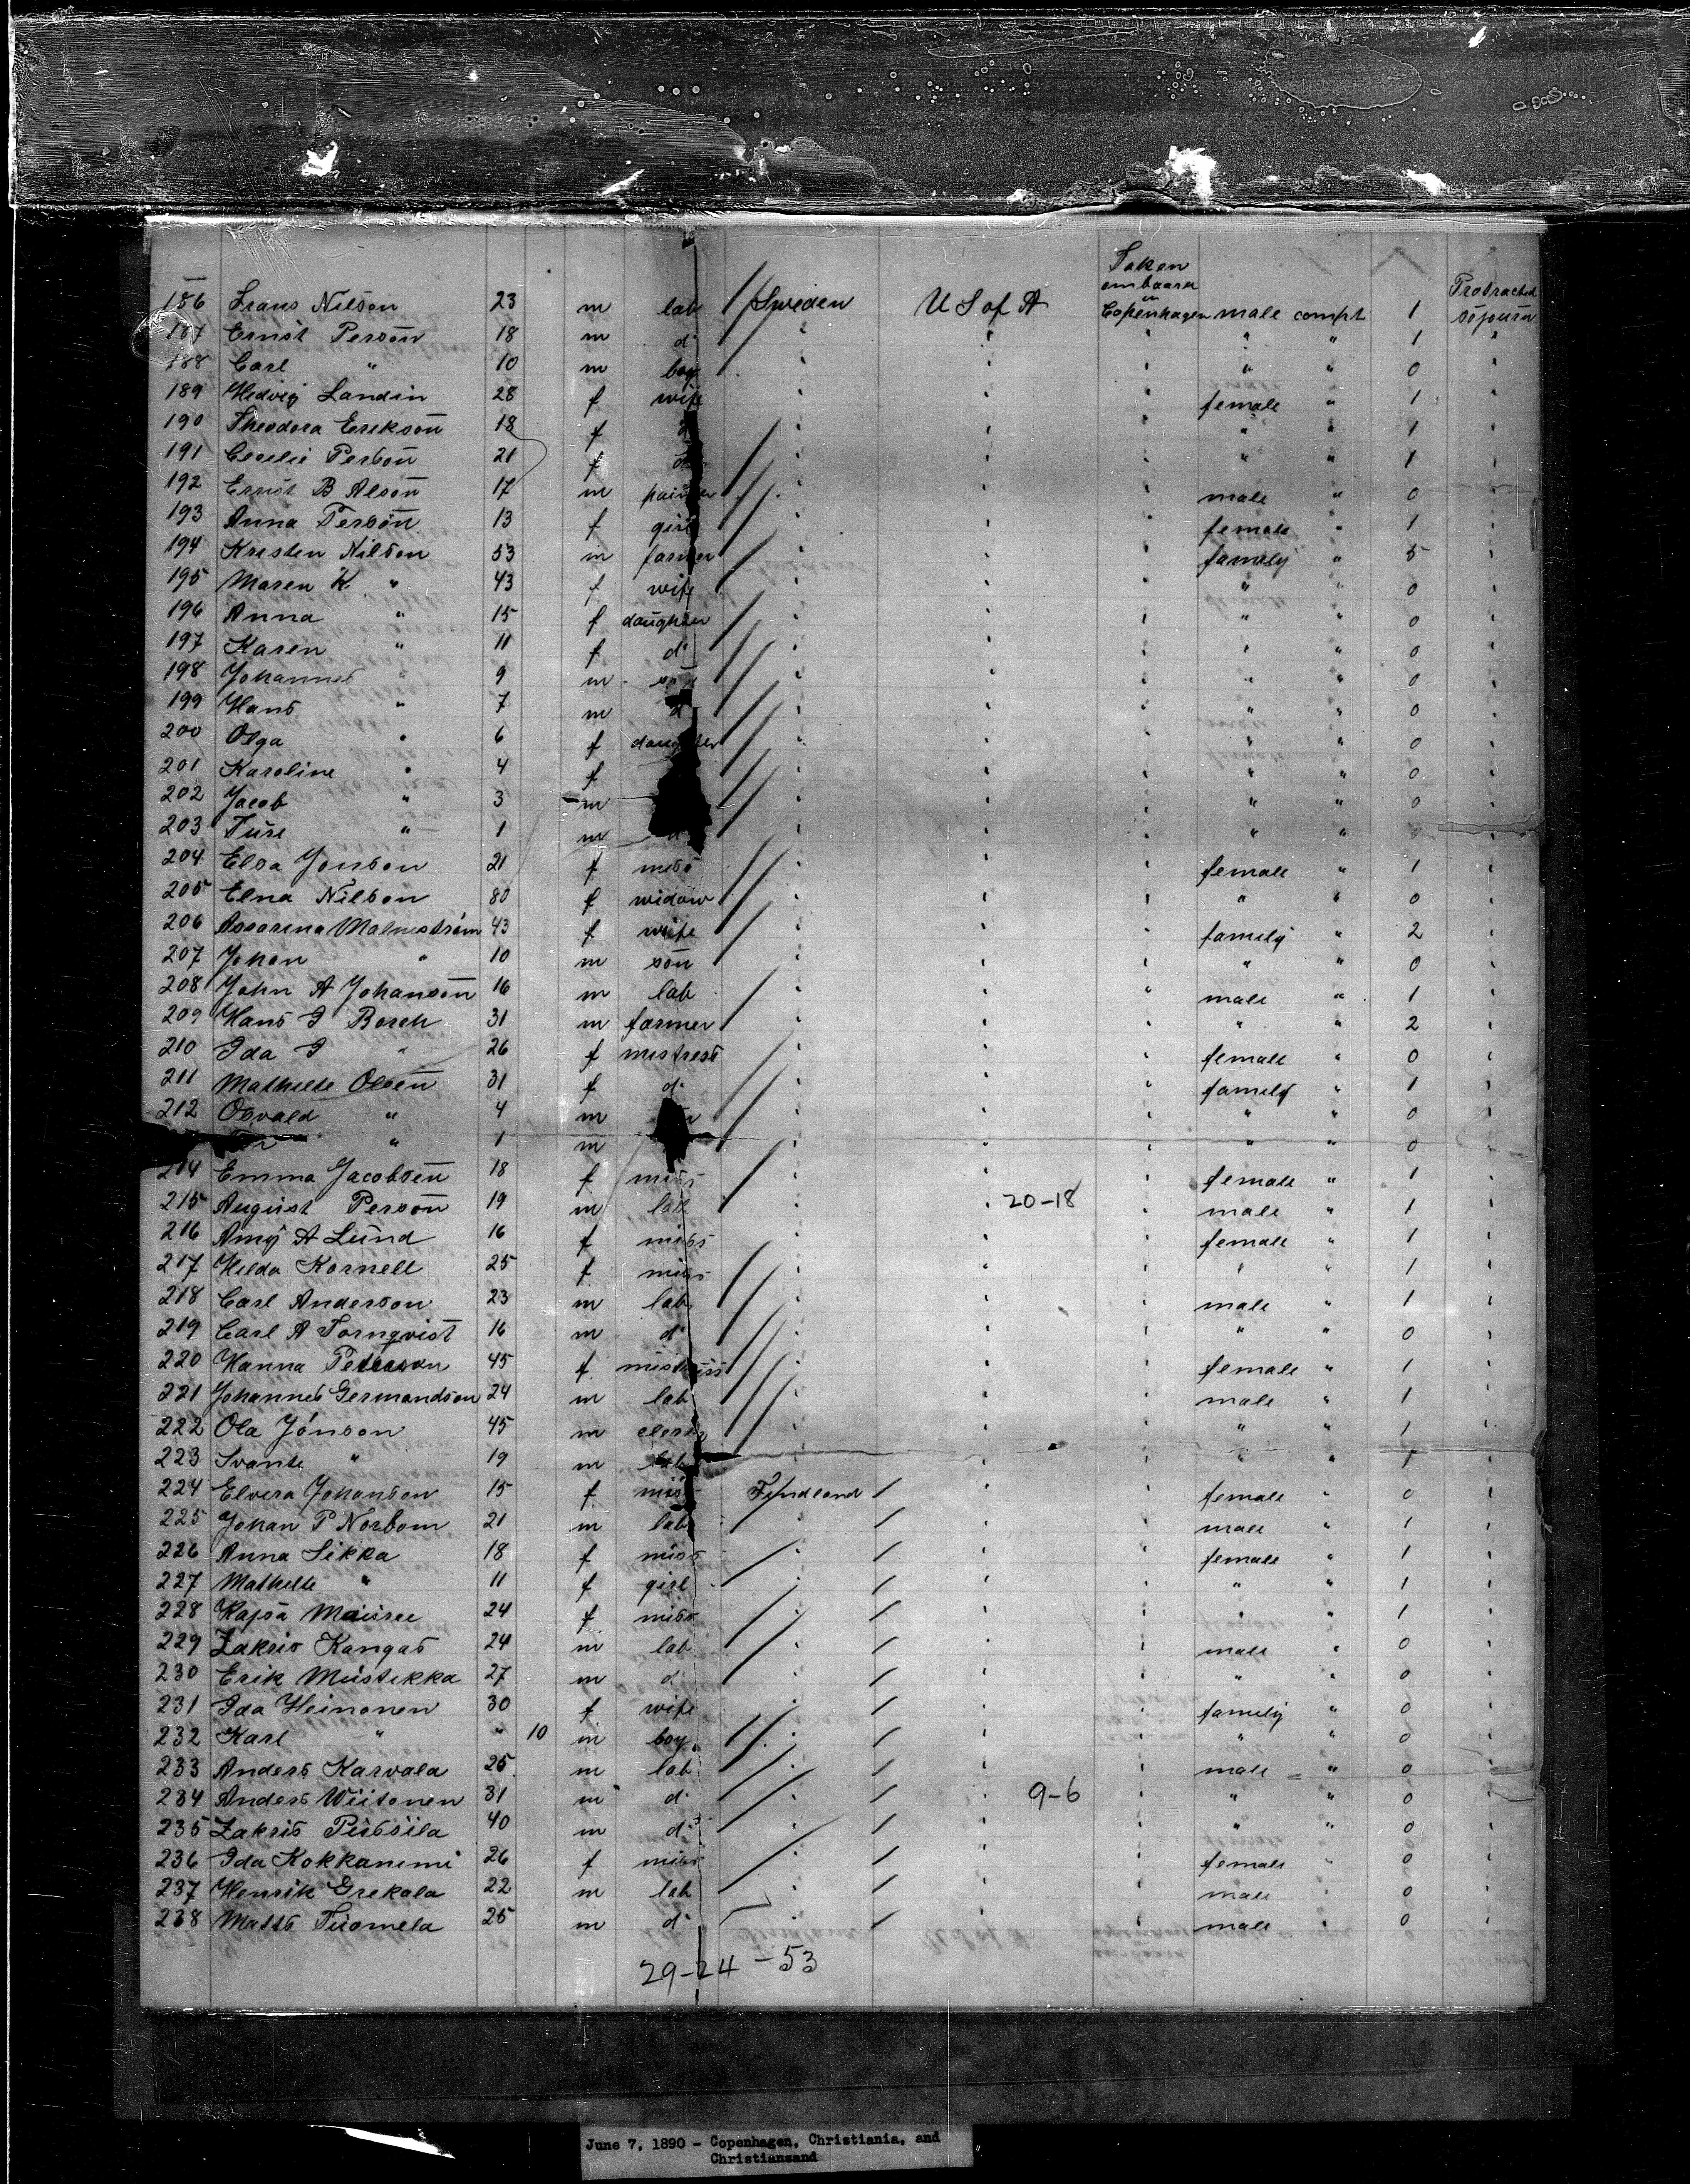 Taken
embaared
in
Protracted
186 Frans Nilson 23 m lab Sweden U S of A Copenhagen male compt 1 sojourn
187 Ernst Person 18 m do " " " " " 1 "
188 Carl " 10 m boy " " " " " 0 "
189 Hedvig Landin 28 f wife " " " female " 1 "
190 Theodora Erekson 18 f " " " " " 1 "
191 Cecilie Person 21 f " " " " " 1 "
192 Ernst B Alson 17 m painter " " " male " 0 "
193 Anna Person 13 f girl " " " female " 1 "
194 Kristen Nilson 53 m farmer " " " family " 5 "
195 Maren K. " 43 f wife " " " " " 0 "
196 Anna " 15 f daughter " " " " " 0 "
197 Karen " 11 f do " " " " " 0 "
198 Johannes " 9 m son " " " " " 0 "
199 Hans " 7 m d " " " " " 0 "
200 Olga " 6 f daughter " " " " " 0 "
201 Karoline " 4 f " " " " " 0 "
202 Jacob " 3 m " " " " " 0 "
203 Ture " 1 m d " " " " " 0 "
204 Elsa Jonson 21 f miss " " " female " 1 "
205 Elna Nilson 80 f widow " " " " " 0 "
206 Assarina Malmström 43 f wife " " " family " 2 "
207 Johan " 10 m son " " " " " 0 "
208 John A Johanson 16 m lab " " " male " 1 "
209 Hans I Borch 31 m farmer " " " " " 2 "
210 Ida I " 26 f mistress " " " female " 0 "
211 Mathilde Olsen 31 f do " " " family " 1 "
212 Osvald " 4 m " " " " " 0 "
" 1 m " " " " " 0 "
214 Emma Jacobsen 18 f miss " " " female " 1 "
215 August Person 19 m lab " " 20-18 " male " 1 "
216 Amy A Lund 16 f miss " " " female " 1 "
217 Hilda Kornell 25 f miss " " " " " 1 "
218 Carl Anderson 23 m lab " " " male " 1 "
219 Carl A Tornqvist 16 m do " " " " " 0 "
220 Hanna Peterson 45 f mistress " " " female " 1 "
221 Johannes Germandson 24 m lab " " " male " 1 "
222 Ola Jönson 45 m clerk " " " " " 1 "
223 Svante " 19 m lab " " " " " 1 "
224 Elvira Johanson 15 f miss Findland " " female " 0 "
225 Johan P Norbom 21 m lab " " " male " 1 "
226 Anna Sikka 18 f miss " " " female " 1 "
227 Mathilde " 11 f girl " " " " " 1 "
228 Kajsa 24 f miss " " " " " 1 "
229 Zakris Kangas 24 m lab " " " male " 0 "
230 Erik Mustikka 27 m d " " " " " 0 "
231 Ida Heinonen 30 f wife " " " family " 0 "
232 Karl " " 10 m boy " " " " " 0 "
233 Anders Karvala 25 m lab " " " male " 0 "
234 Anders Wiitonen 31 m do " " 9-6 " " " 0 "
235 Zakris 40 m do " " " " " 0 "
236 Ida Kokkanimi 26 f miss " " " female " 0 "
237 Henrik Grekala 22 m lab " " " male " 0 "
238 Matts Tuomela 25 m do " " " male " 0 "
29-24-53
June 7, 1890 - Copenhagen, Christiania, and
Christiansand